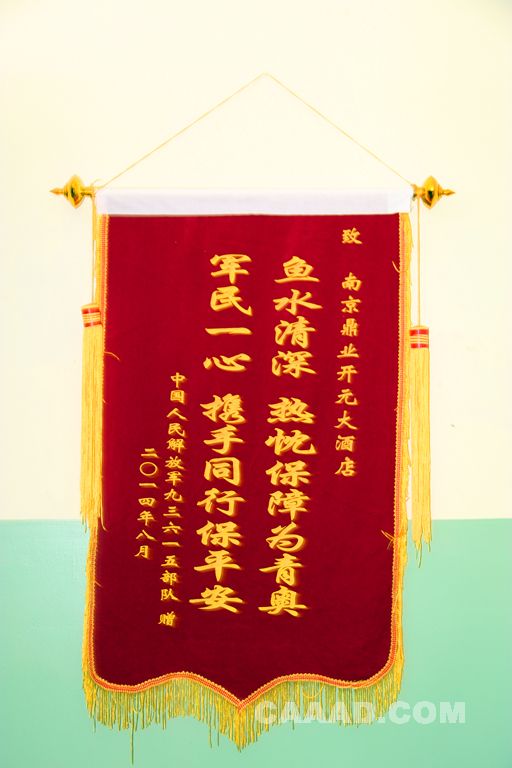 致 南京鼎业开元大酒店
鱼水清深 热忱保障为青奥
军民一心 携手同行保平安
中国人民解放军九三六一五部队 赠
二〇一四年八月
CAAAD.COM